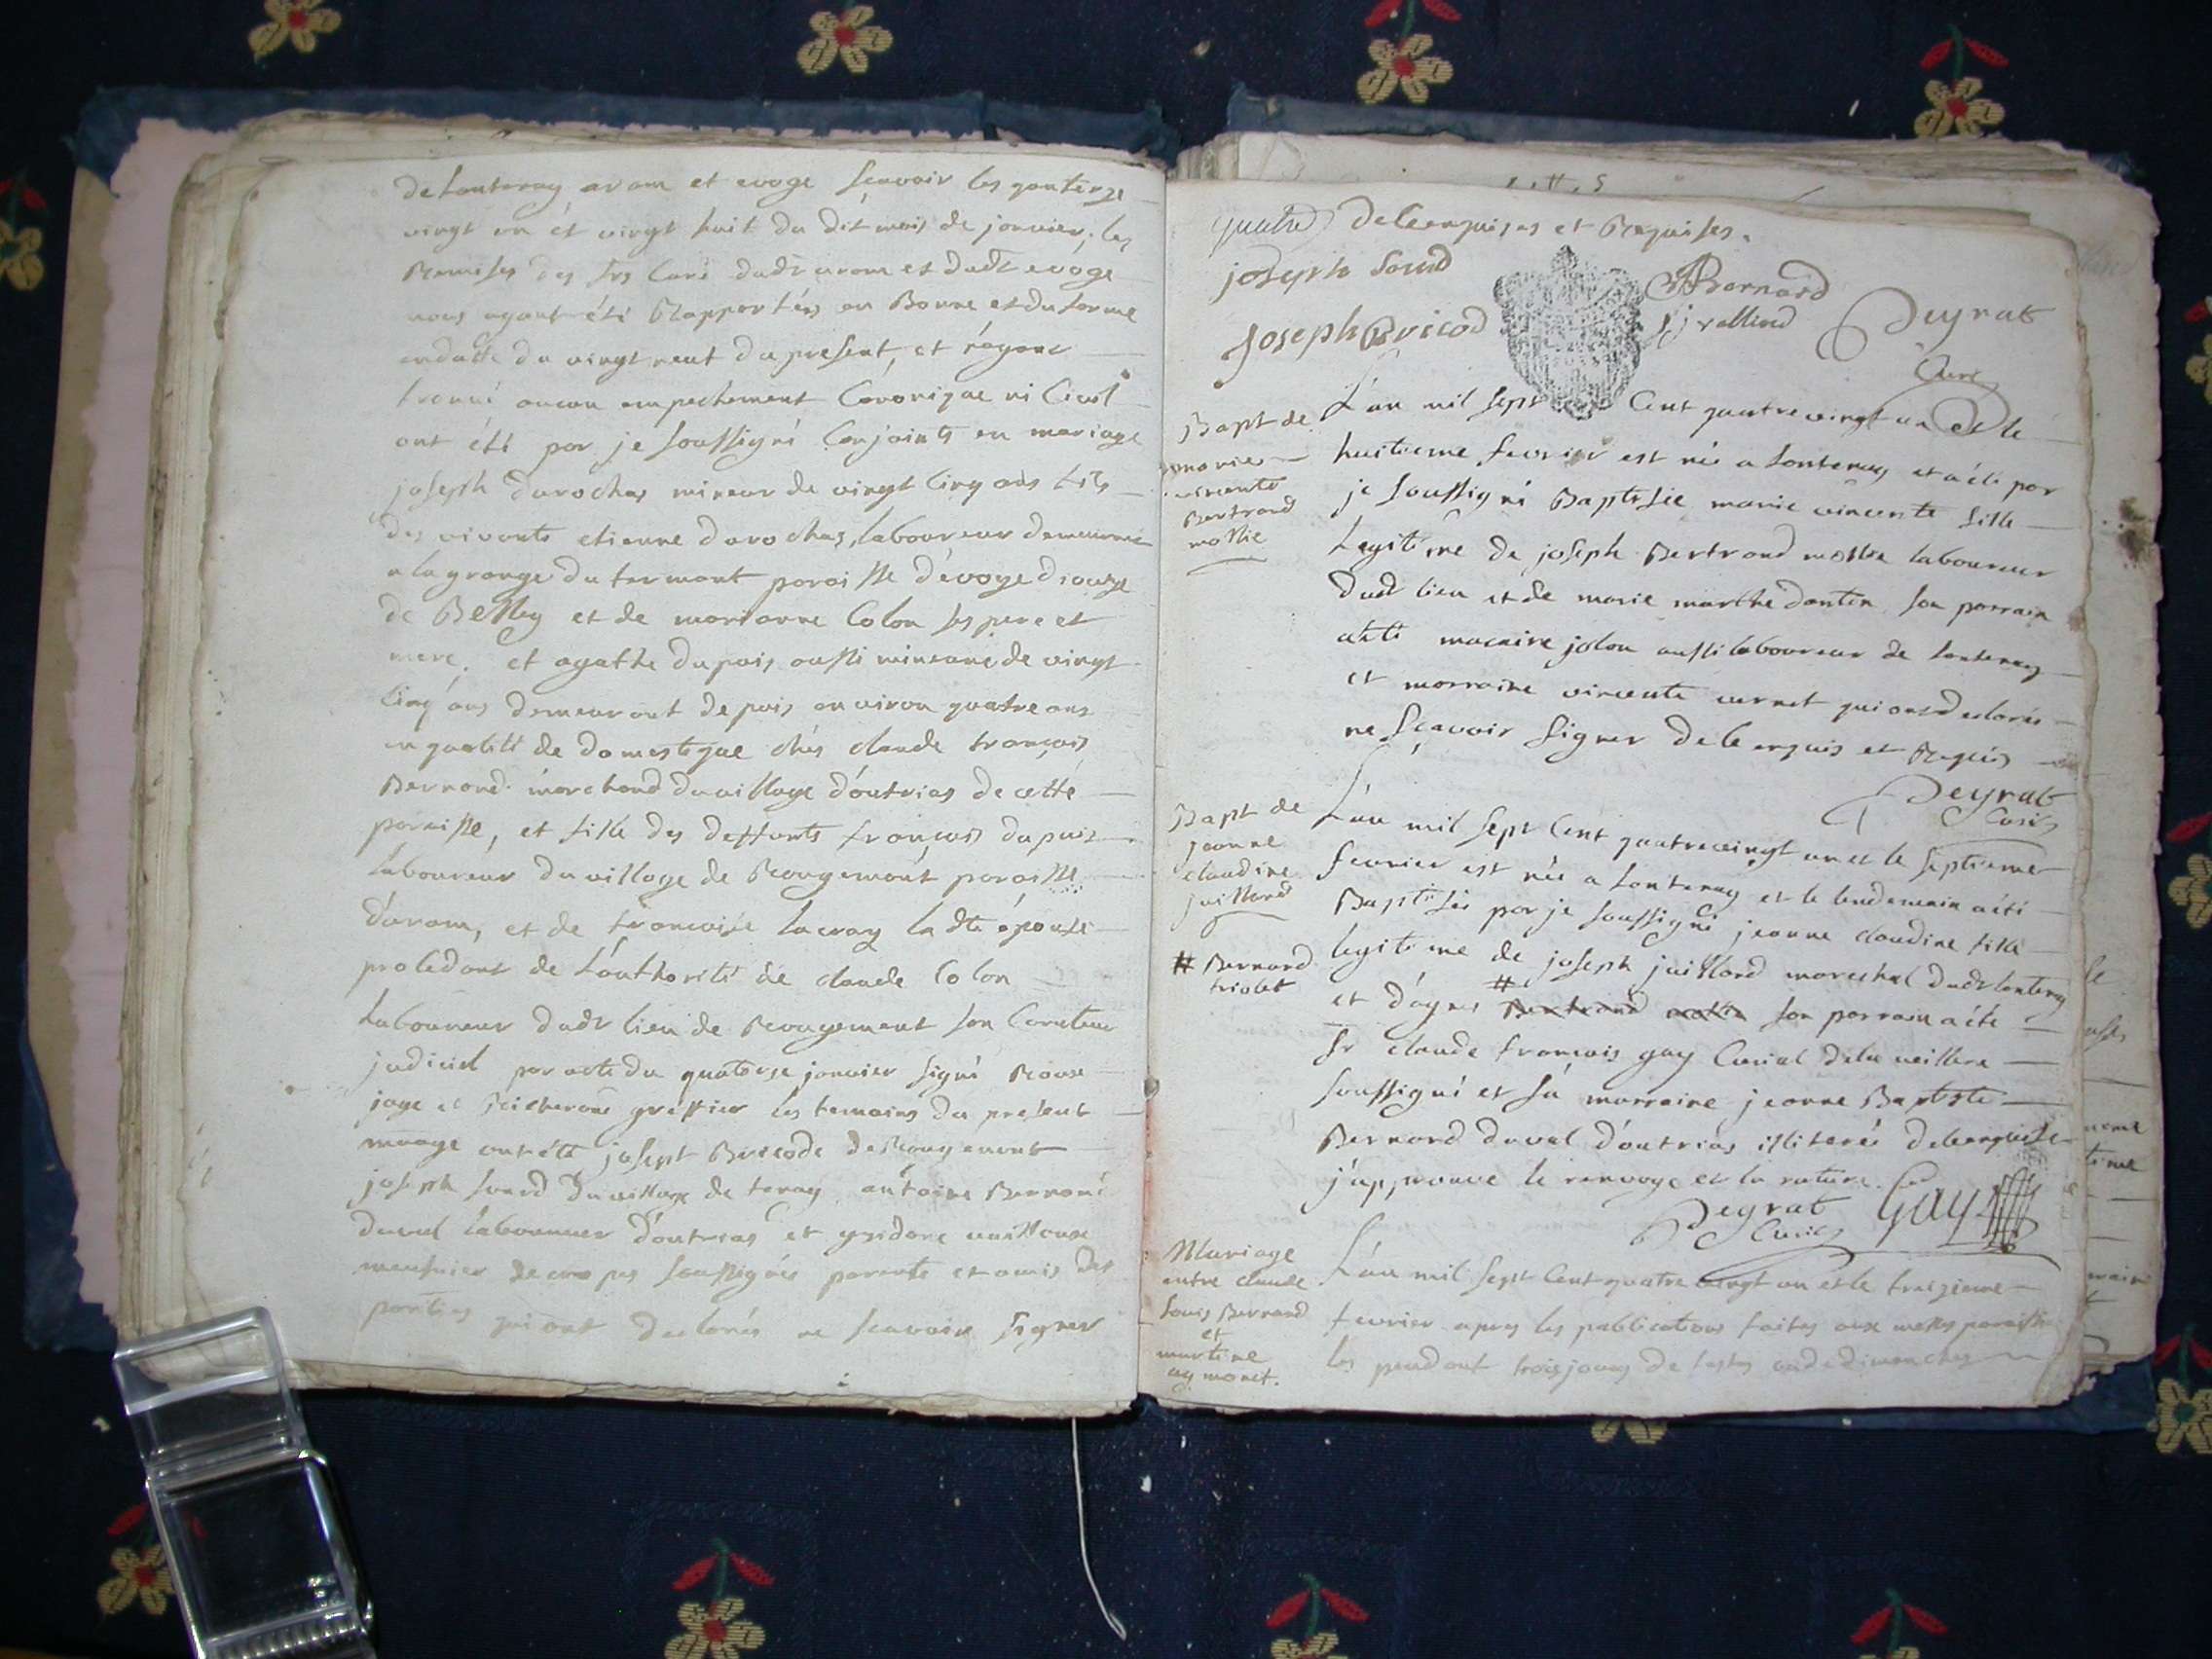 de Lantenay aram et evoge sçavoir les quatorze
vingt un et vingt huit du dit mois de janvier, les
Remises des srs Curé dudt arom et dudt evoge
nous ayant été Rapportées en Bonne et due forme
en datte du vingt neuf du present, et n'ayant
trouvé aucun empechement Canonique ni Civil
ont été par je soussigné Conjoints en mariage
joseph durochas mineur de vingt cinq ans fils
des vivants etienne durochas, laboureur demeurant
a la grange du termant paroisse d'evoge diocese
de Belley et de marianne Colon ses pere et
mere. et agathe dupuis aussi mineure de vingt
cinq ans demeurant depuis environ quatre ans
en qualité de domestique chés claude françois
Bernard marchand du village d'outrias de cette
paroisse, et fille des deffunts françois dupuis
laboureur du village de Rougemont paroisse
d'aram, et de francoise lacray la dte épouse
procedant de l'authorité de claude Colon
laboureur dudt lieu de Rougement son Curateur
judiciel par acte du quatorze janvier signé
juge et greffier les temoins du present
mariage ont été josept Bricode de Rougement
joseph sourd du village de tenay antoine Bernard
duvel laboureur d'outrias et ysidore
meusnier soussignés parents et amis des
parties qui ont declarés ne scavoir signer
quatre de Leenquises et Requises.
joseph sourd
ABernard
Joseph Bricod
Deyrat
Curé
Bapt de
marie
vincente
Bertrand
mollie
L'an mil sept Cent quatre vingt un et le
huitieme fevrier est née a lantenay et a été par
je soussigné Baptisée marie vincente fille
Legitime de joseph Bertrand mollie laboureur
dudt lieu et de marie marthe dantin son parrain
a été macaire jolon aussi laboureur de lantenay
et marraine vincente curnet qui ont declarés
ne sçavoir signer de le enquis et Requis
Deyrat
Curé
Bapt de
jeanne
claudine
juillard
L'an mil sept Cent quatre vingt un et le septieme
fevrier est née a lantenay et le lendemain a été
Baptisée par je soussigné jeanne claudine fille
legitime de joseph juillard marechal dudt lantenay
# Bernard
triolet
et d'agnes # Bertrand mollie son parrain a été
sr claude françois gay Curial dela veillere
soussigné et sa marraine jeanne Baptiste
Bernard duvel d'outrias illiterée de leenquise
j'approuve le renvoye et la rature.
Deyrat
Curé
Gay
Mariage
entre claude
louis Bernard
et
martine
aymonet.
L'an mil sept Cent quatre vingt un et le treizieme
fevrier apres les publications faites aux messes paroissia
les pendant trois jours de festes ou de dimanches